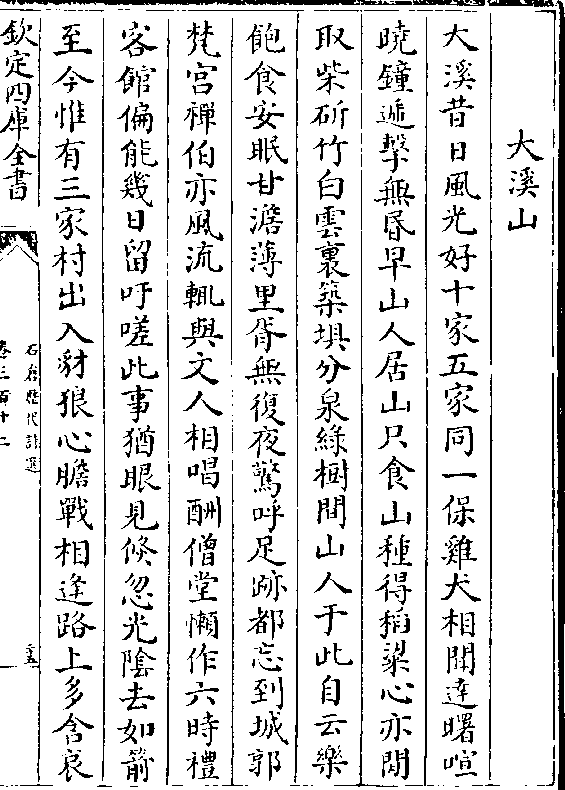 大溪山
大溪昔日風光好十家五家同一保雞犬相聞達曙喧
曉鐘遞擊無昏早山人居山只食山種得稻粱心亦閒
取柴斫竹白雲裏築埧分泉綠樹間山人于此自云樂
飽食安眠甘澹薄里胥無復夜驚呼足跡都忘到城郭
梵宮禪伯亦風流輒與文人相唱酬僧堂懶作六時禮
客館偏能幾日留吁嗟此事猶眼見倐忽光陰去如箭
至今惟有三家村出入豺狼心膽戰相逢路上多含哀
欽定四庫全書
石倉歷代詩選
卷三百十二
十五